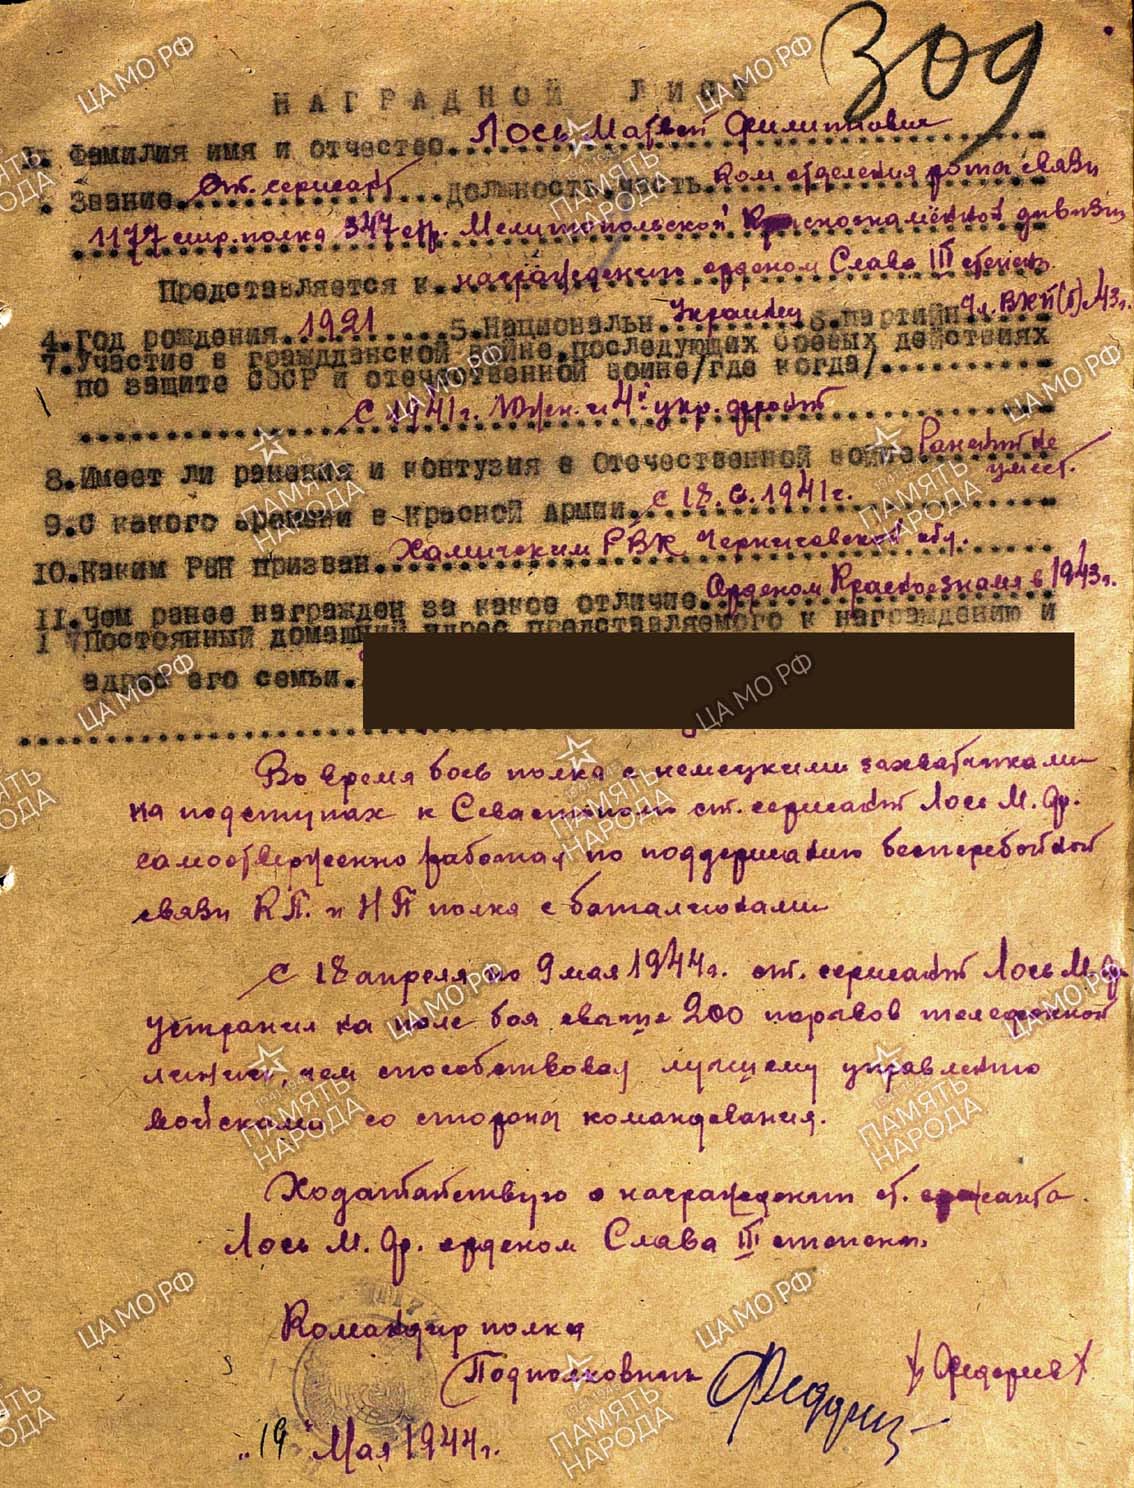 309
НАГРАДНОЙ ЛИСТ
1. Фамилия имя и отчество. Лось Матвей Филиппович
Звание. Ст. сержант должность, часть. Ком отделения рота связи
1177 стр. полка 347 стр. Мелитопольской Краснознамённой дивизии
Представляется к. награждению орденом Слава III степень.
4. Год рождения. 1921 5. Национальн. Украинец 6. партийн. чл. ВКП(б) с 43 г.
7. Участие в гражданской войне, последующих боевых действиях
по защите СССР и отечественной войне/где когда/.
С 1941 г. Южн. и 4й укр. фронт
8. Имеет ли ранения и контузия в Отечественной войне Ранений не
имеет.
9. С какого времени в Красной Армии. с 18. 6. 1941 г.
10. Каким РВК призван. РВК Черниговской обл.
11. Чем ранее награжден за какое отличие. Орденом Красное знамя в 1943 г.
1 Постоянный домашний адрес представляемого к награждению и
адрес его семьи.
Во время боев полка с немецкими захватчиками
на подступах к Севастополю ст. сержант Лось М. Ф.
самоотверженно работал по поддержанию бесперебойной
связи КП. и НП полка с баталионами
С 18 апреля по 9 мая 1944 г. ст. сержант Лось М. Ф.
устранил на поле боя свыше 200 порывов телефонной
линии, чем способствовал лучшему управлению
войсками со стороны командования.
Ходатайствую о награждении ст. сержанта
Лось М. Ф. орденом Слава III степени.
Командир полка
Подполковник
"19" Мая 1944 г.
ЦА МО РФ
ПАМЯТЬ
НАРОДА